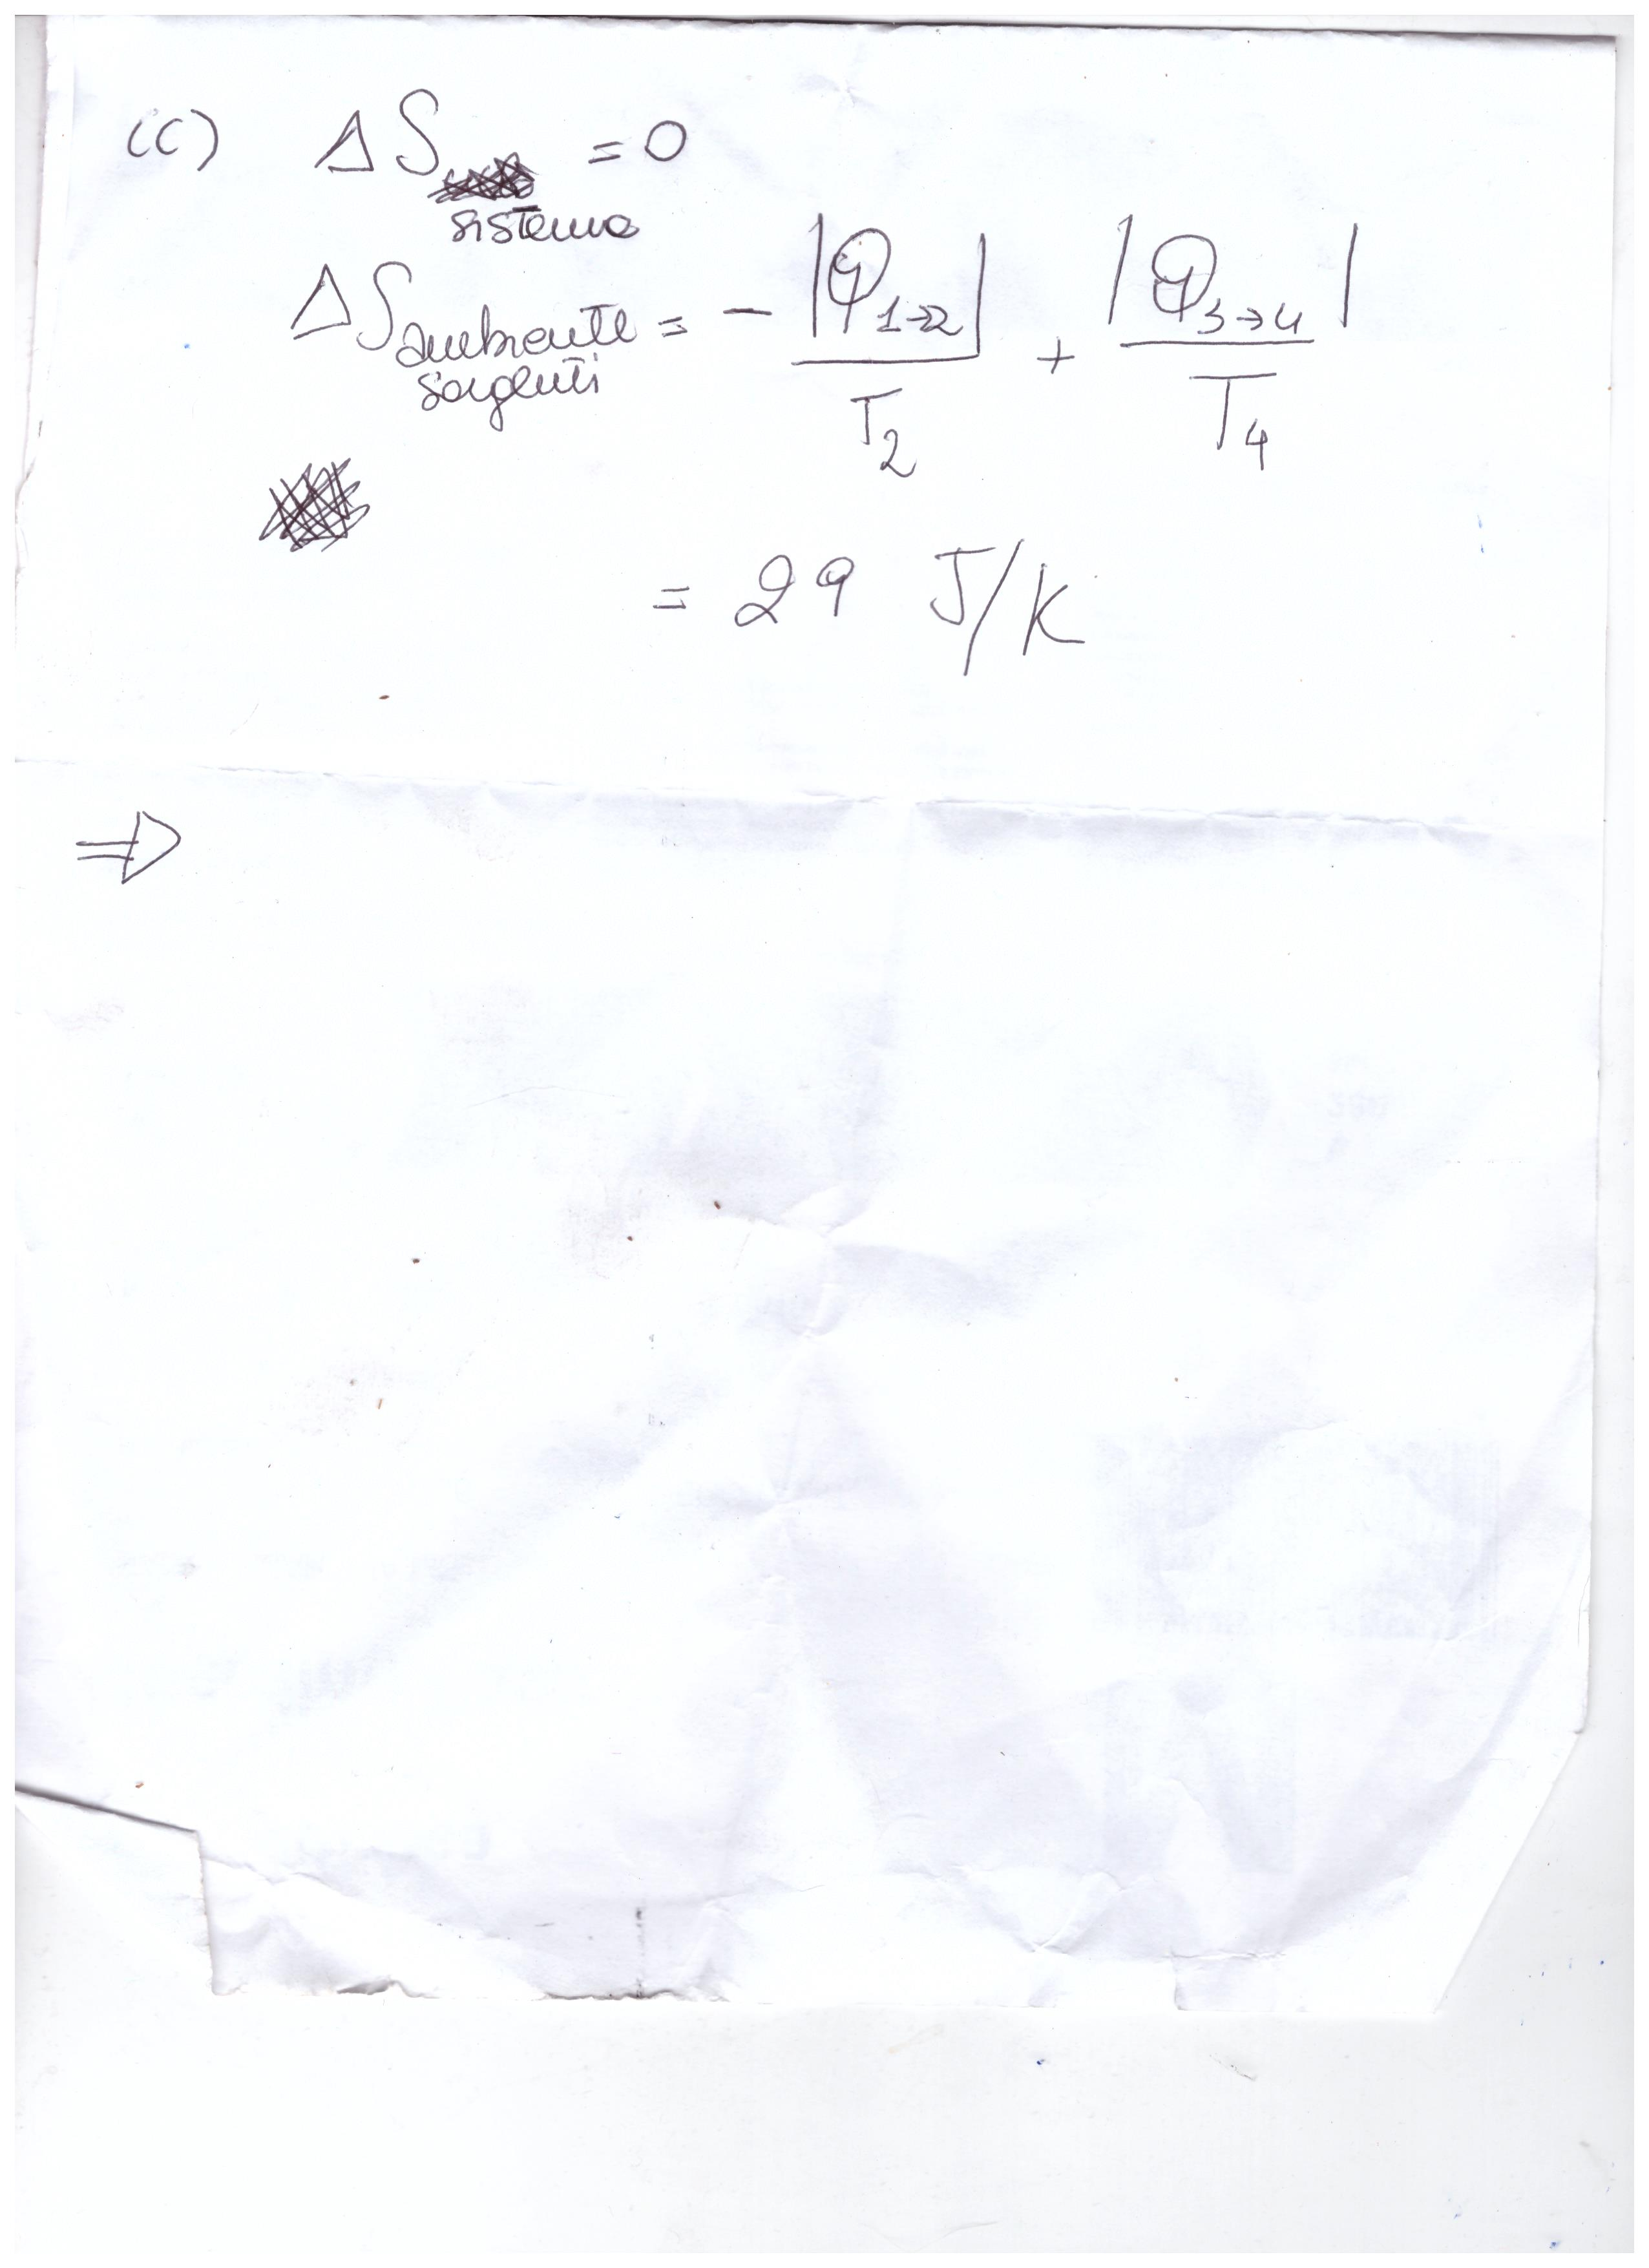 (c) ΔS sistema = 0
ΔS ambiente sorgenti = - |Q1→2| / T2 + |Q3→4| / T4
= 29 J/K
⇒